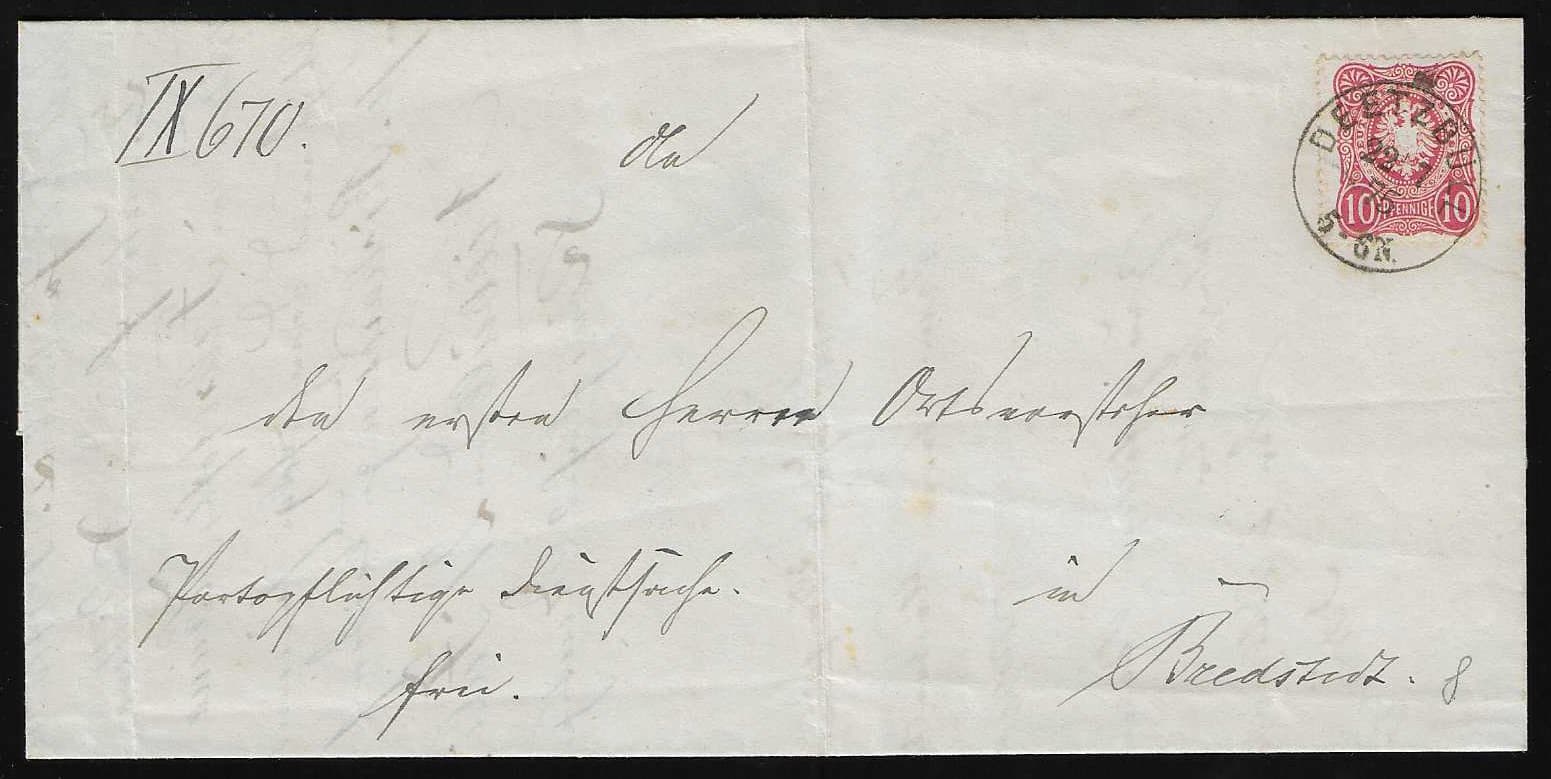 IX 670.
An
den ersten Herrn Ortsvorsteher
Portopflichtige Dienstsache.
frei.
in
Bredstedt. 8
DEETZBÜLL
5-6N.
10 PFENNIGE 10